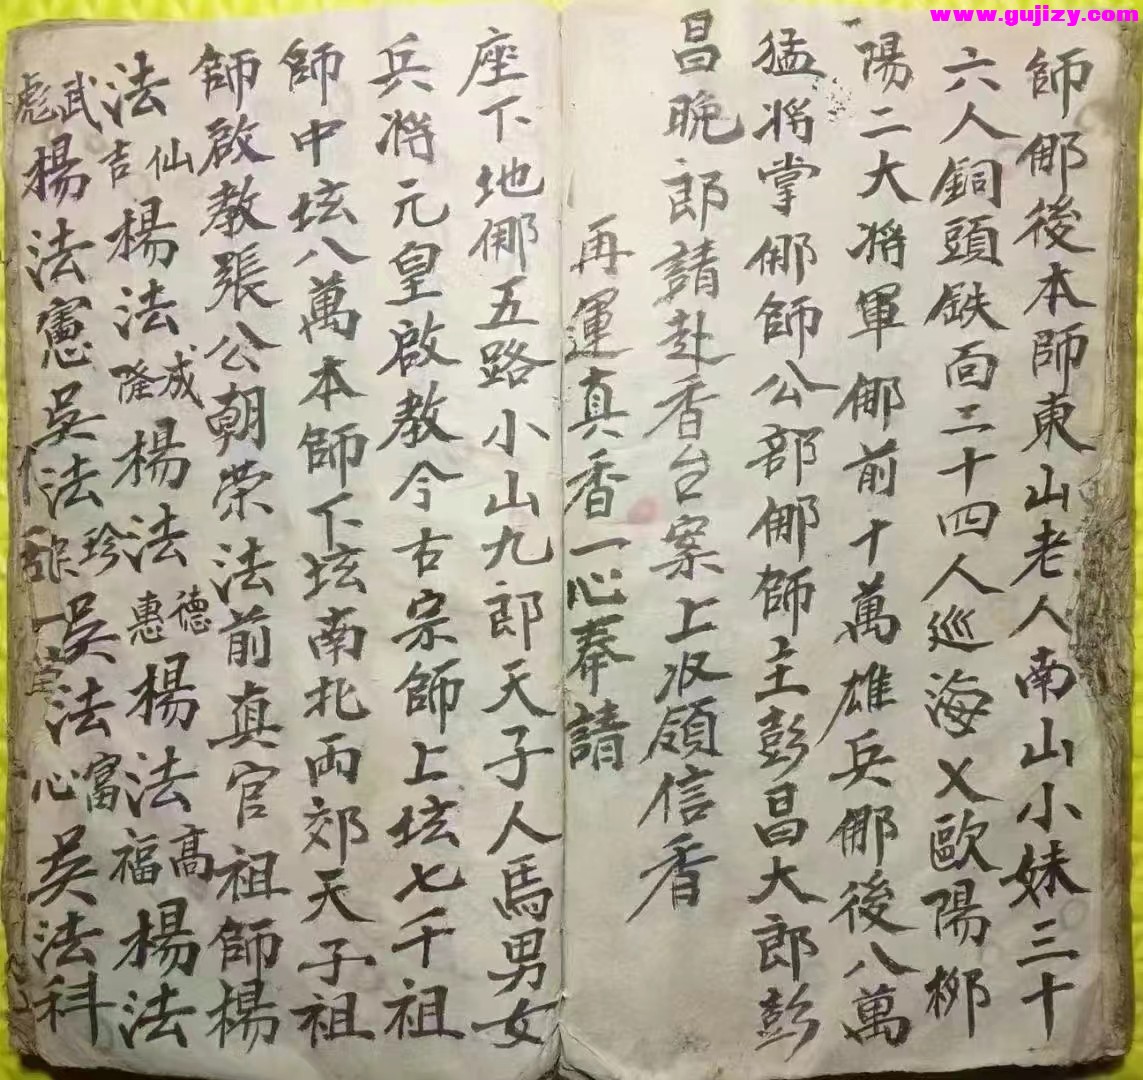 www.gujizy.com
師郍後本師東山老人南山小妹三十
六人銅頭鉄面二十四人巡海乂歐陽柳
陽二大将軍郍前十萬雄兵郍後八萬
猛将掌郍師公部郍師主彭昌大郎彭
昌晚郎請赴香台案上収領信香
再運真香一心奉請
座下地郍五路小山九郎天子人馬男女
兵将元皇啟教今古宗師上垓七千祖
師中垓八萬本師下垓南北両郊天子祖
師啟教張公朝荣法前真官祖師楊
法仙吉楊法成隆楊法德惠楊法高福楊法
武彪楊法憲吳法珍吳法富吳法科